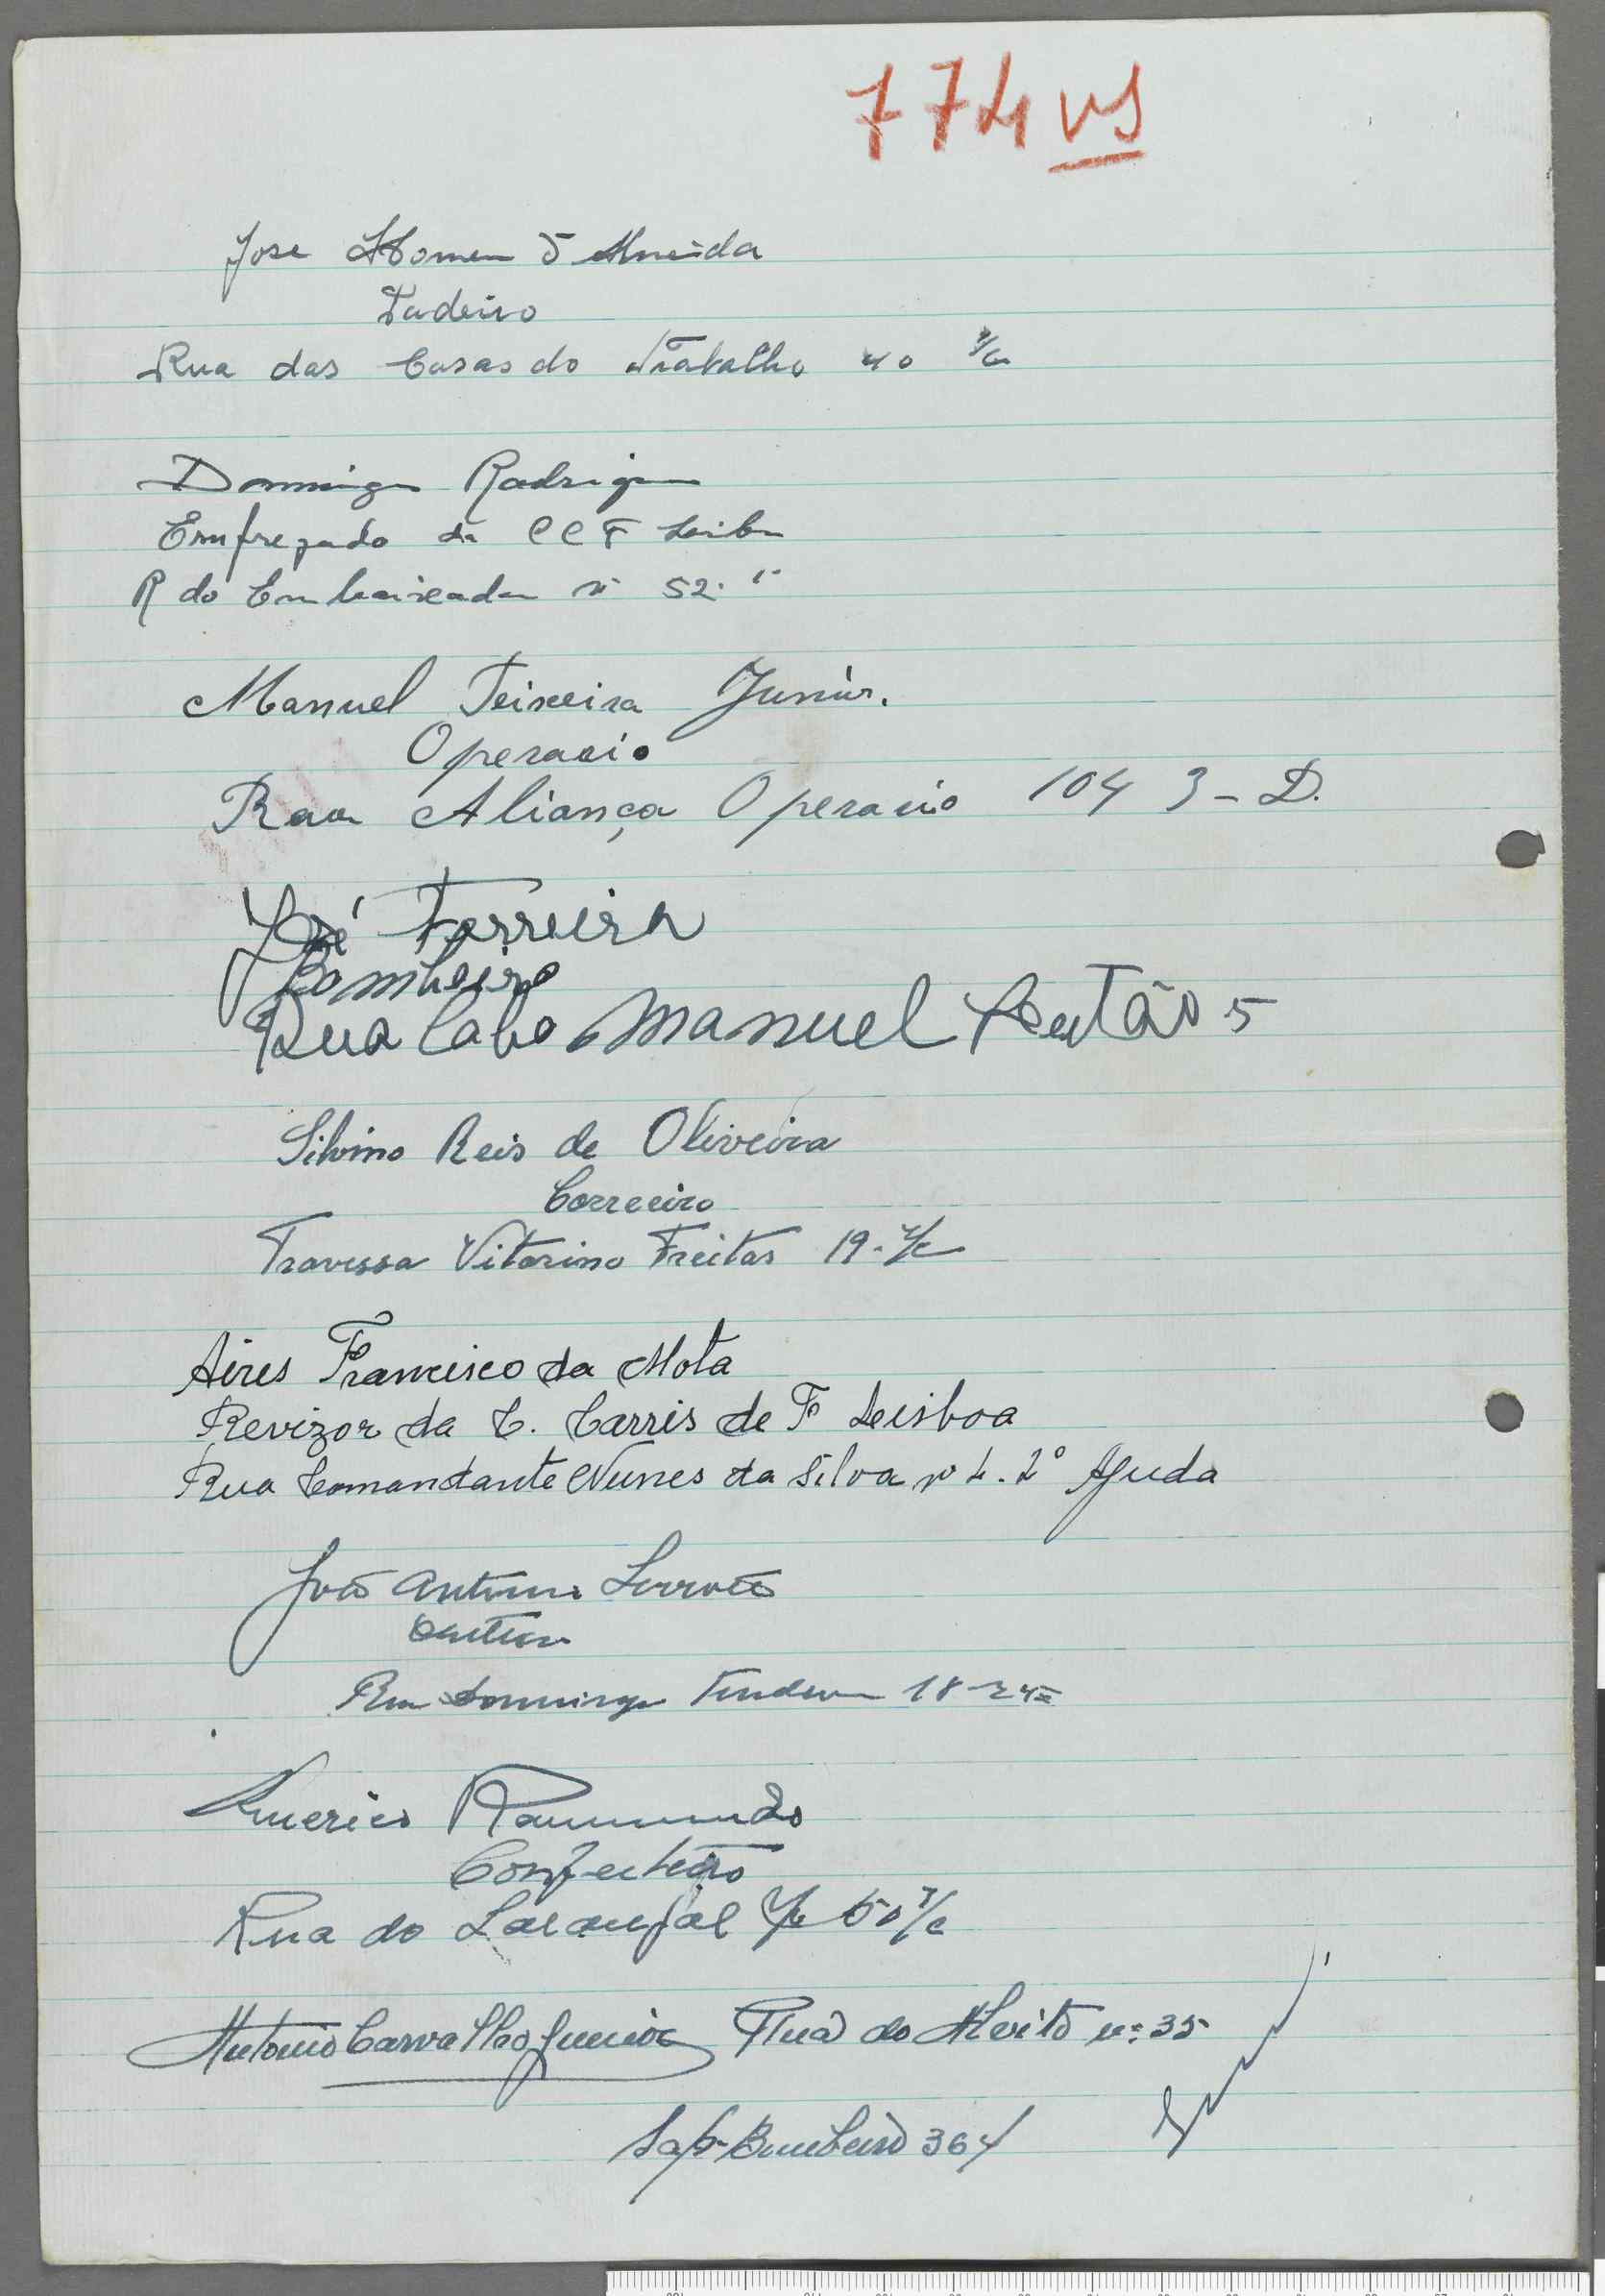 774 vs
Jose Homem d Almeida
Padeiro
Rua das Casas do Trabalho 40 r/c
Domingos Rodrigues
Empregado da CCF Lisboa
R do Embaixador nº 52.
Manuel Teixeira Junior.
Operario
Rua Aliança Operario 104 3-D.
José Ferreira
Bombeiro
Rua Cabo Manuel Leitão 5
Silvino Reis de Oliveira
Correeiro
Travessa Vitorino Freitas 19-r/c
Aires Francisco da Mota
Revizor da C. Carris de F Leisboa
Rua Comandante Nunes da Silva nº 4. 2º Ajuda
João Antonio
Rua Domingos 18-2
Americo Raimundo
Confeiteiro
Rua do Laranjal 50 r/c
Antonio Carvalho Junior Rua do Alvito nº 35
Sap-Bombeiro 364